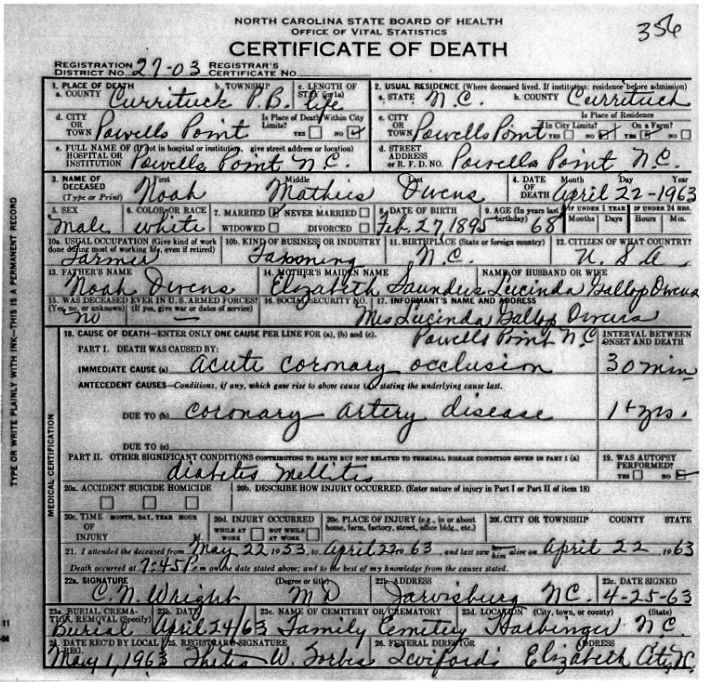 NORTH CAROLINA STATE BOARD OF HEALTH
OFFICE OF VITAL STATISTICS
356
CERTIFICATE OF DEATH
REGISTRATION DISTRICT NO. 27-03 REGISTRAR'S CERTIFICATE NO.
1. PLACE OF DEATH
a. COUNTY Currituck
b. TOWNSHIP P.B.
c. LENGTH OF STAY life
2. USUAL RESIDENCE (Where deceased lived. If institution: residence before admission)
a. STATE N.C. b. COUNTY Currituck
d. CITY OR TOWN Powells Point
Is Place of Death Within City Limits? YES NO
c. CITY OR TOWN Powells Point
Is Place of Residence
In City Limits? YES NO
On a Farm? YES NO
e. FULL NAME OF (If not in hospital or institution, give street address or location)
HOSPITAL OR INSTITUTION Powells Point N.C.
d. STREET ADDRESS or R. F. D. NO. Powells Point N.C.
3. NAME OF DECEASED (Type or Print)
First Middle Last
Noah Mathias Owens
4. DATE OF DEATH Month Day Year
April 22-1963
5. SEX Male
6. COLOR OR RACE white
7. MARRIED NEVER MARRIED
WIDOWED DIVORCED
8. DATE OF BIRTH Feb. 27 1895
9. AGE (In years last birthday) 68
IF UNDER 1 YEAR Months Days
IF UNDER 24 HRS. Hours Min.
10a. USUAL OCCUPATION (Give kind of work done during most of working life, even if retired)
Farmer
10b. KIND OF BUSINESS OR INDUSTRY
11. BIRTHPLACE (State or foreign country)
N.C.
12. CITIZEN OF WHAT COUNTRY?
U.S.A
13. FATHER'S NAME
Noah Owens
14. MOTHER'S MAIDEN NAME
Elizabeth Saunders
NAME OF HUSBAND OR WIFE
Lucinda Gallop Owens
15. WAS DECEASED EVER IN U. S. ARMED FORCES?
(Yes, no, or unknown) (If yes, give war or dates of service)
no
16. SOCIAL SECURITY NO.
17. INFORMANT'S NAME AND ADDRESS
Mrs Lucinda Gallop Owens
Powells Point N.C
18. CAUSE OF DEATH—ENTER ONLY ONE CAUSE PER LINE FOR (a), (b) and (c).
INTERVAL BETWEEN ONSET AND DEATH
PART I. DEATH WAS CAUSED BY:
IMMEDIATE CAUSE (a) acute coronary occlusion 30 min
ANTECEDENT CAUSES—Conditions, if any, which gave rise to above cause (a) stating the underlying cause last.
DUE TO (b) coronary artery disease 1+ yrs.
DUE TO (c)
PART II. OTHER SIGNIFICANT CONDITIONS CONTRIBUTING TO DEATH BUT NOT RELATED TO TERMINAL DISEASE CONDITION GIVEN IN PART I (a)
diabetes mellitis
19. WAS AUTOPSY PERFORMED?
YES NO
20a. ACCIDENT SUICIDE HOMICIDE
20b. DESCRIBE HOW INJURY OCCURRED. (Enter nature of injury in Part I or Part II of item 18)
20c. TIME OF INJURY MONTH, DAY, YEAR HOUR
20d. INJURY OCCURRED
WHILE AT WORK NOT WHILE AT WORK
20e. PLACE OF INJURY (e.g., in or about home, farm, factory, street, office bldg., etc.)
20f. CITY OR TOWNSHIP COUNTY STATE
21. I attended the deceased from May 22 1953, to April 22 1963, and last saw him alive on April 22 1963
Death occurred at 7:45 P m on the date stated above; and to the best of my knowledge from the causes stated.
22a. SIGNATURE (Degree or title)
C. N. Wright MD
22b. ADDRESS
Jarvisburg NC.
22c. DATE SIGNED
4-25-63
23a. BURIAL, CREMATION, REMOVAL (Specify)
Burial
23b. DATE
April 24/63
23c. NAME OF CEMETERY OR CREMATORY
Family Cemetery
23d. LOCATION (City, town, or county) (State)
Harbinger N.C.
24. DATE REC'D BY LOCAL REG.
May 1, 1963
25. REGISTRAR'S SIGNATURE
W. Forbes
26. FUNERAL DIRECTOR ADDRESS
Twiford's Elizabeth City N.C.
TYPE OR WRITE PLAINLY WITH INK—THIS IS A PERMANENT RECORD
MEDICAL CERTIFICATION